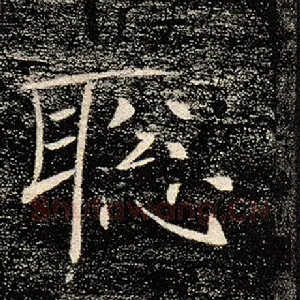 聡
Shufawang.CN